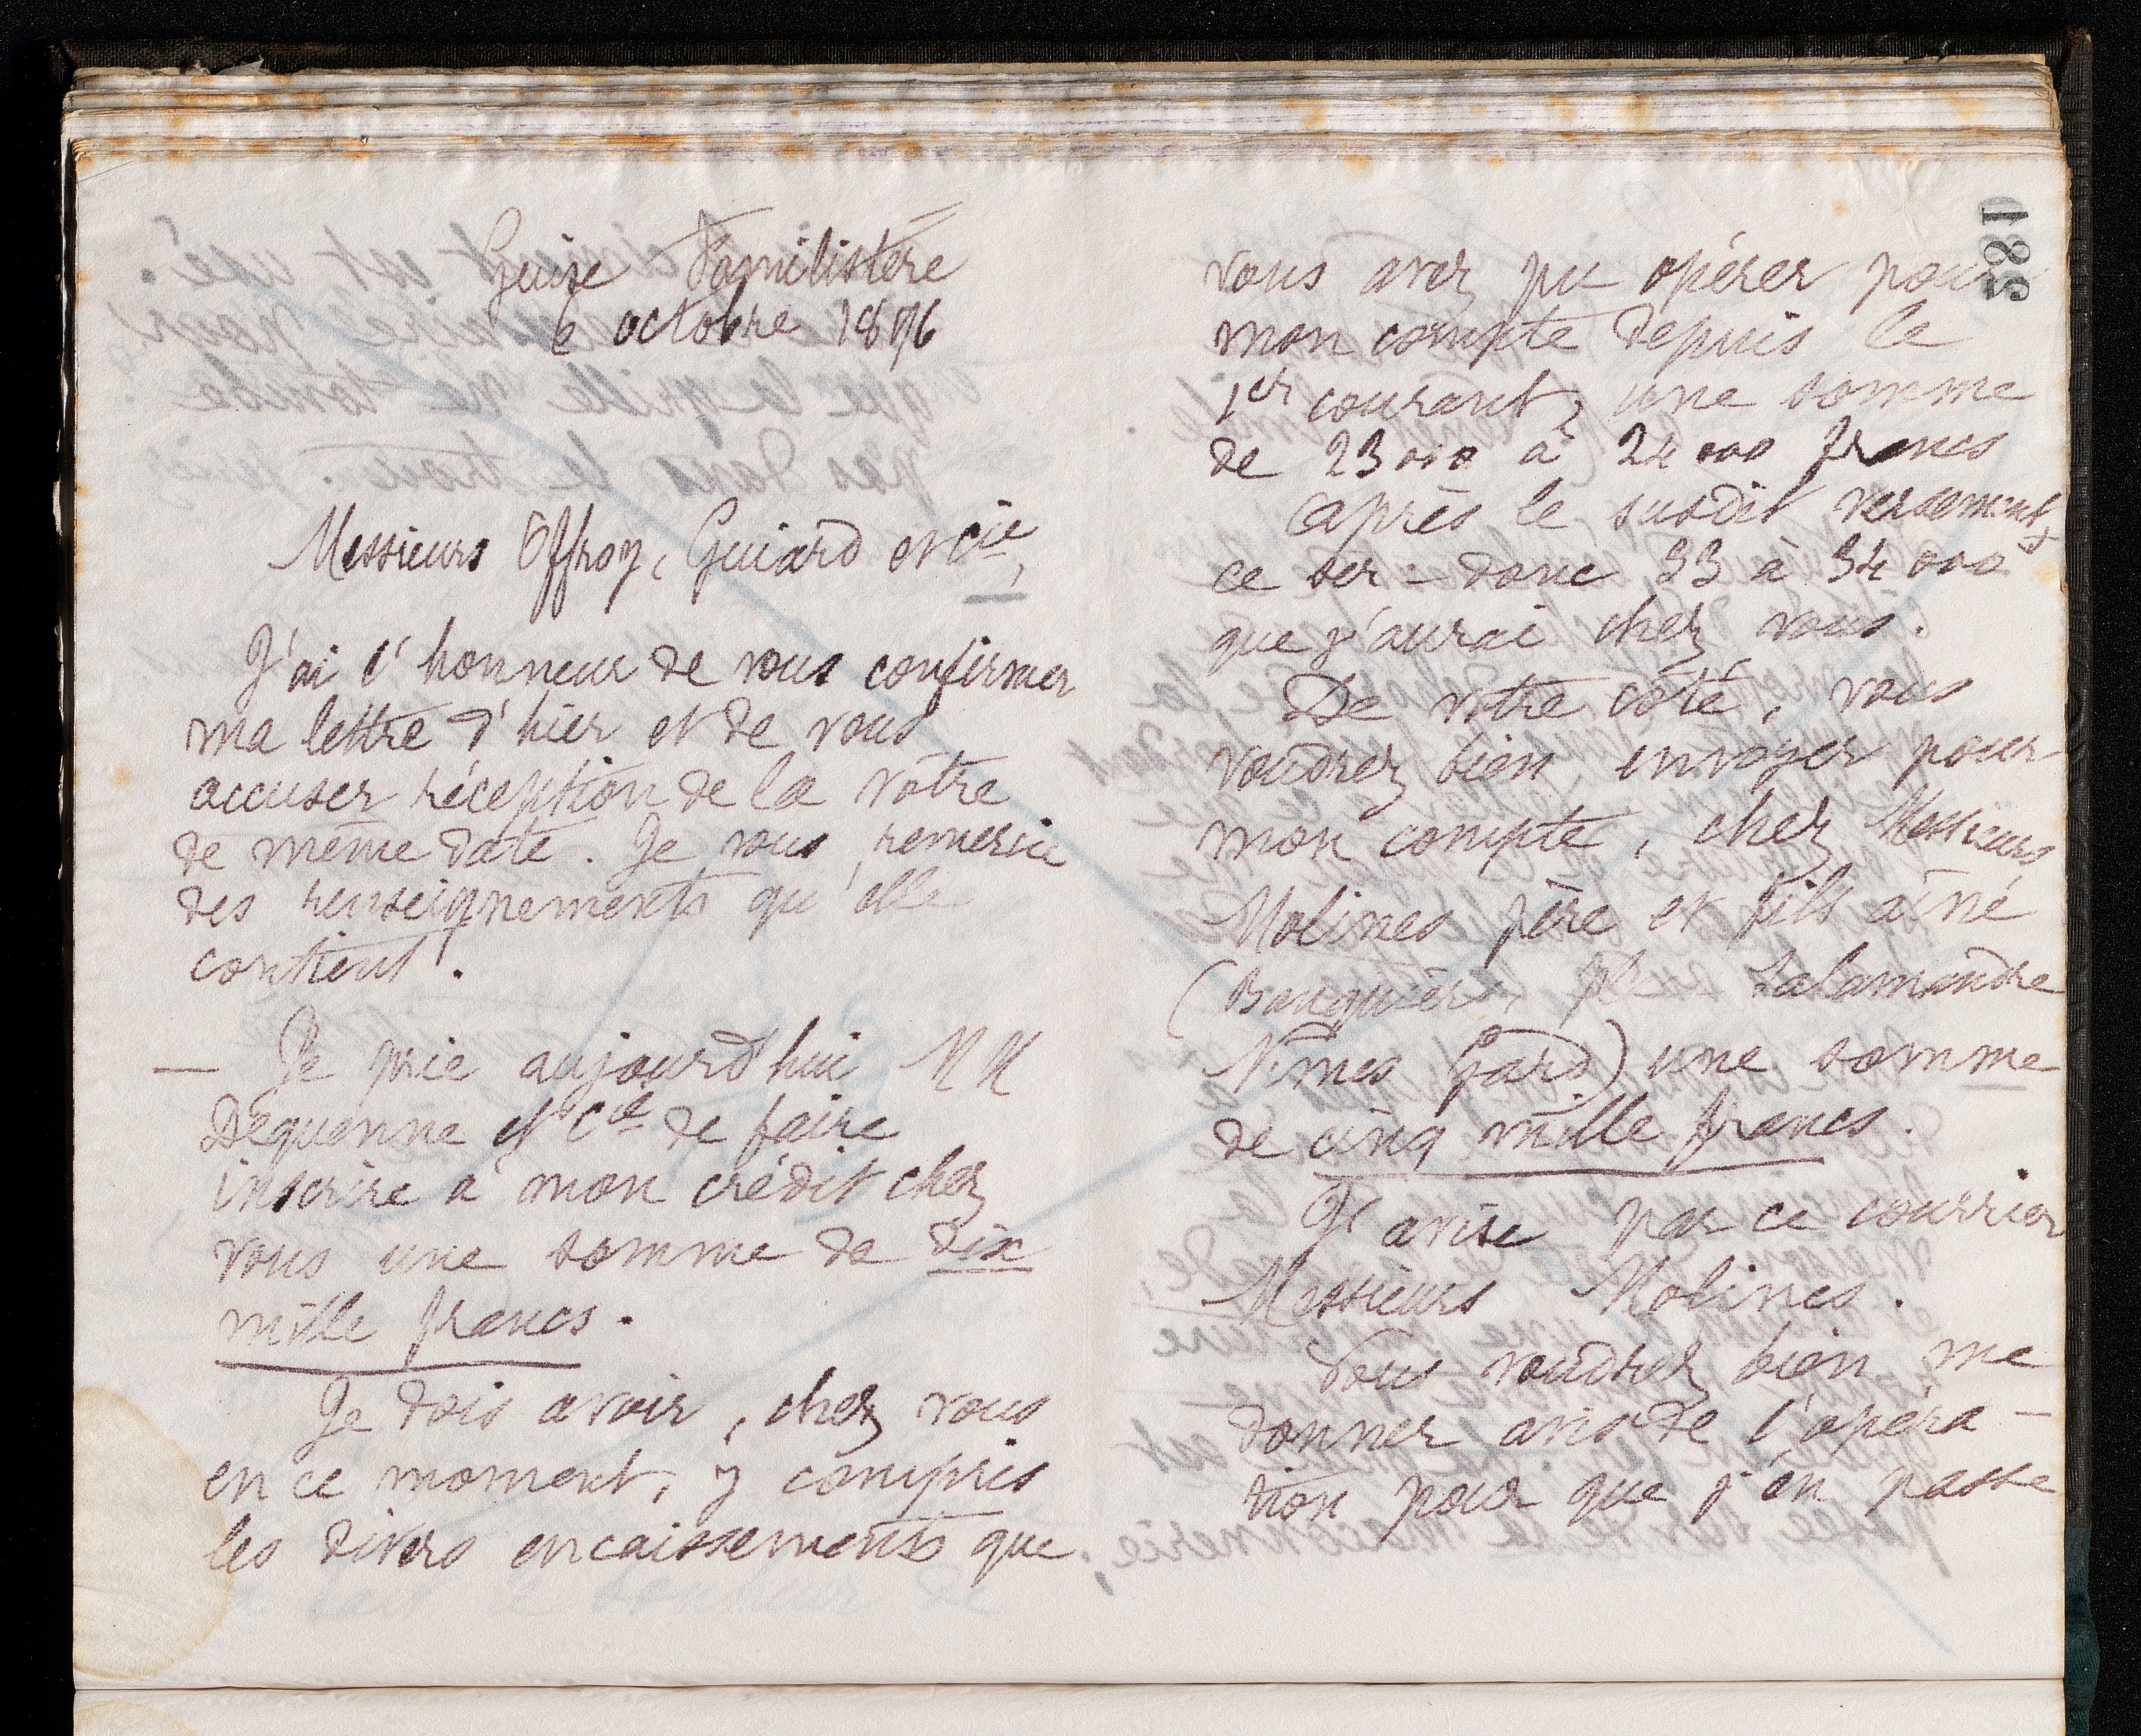 Guise Familistère
6 octobre 1876
Messieurs Offroy, Guiard et Cie,
J'ai l'honneur de vous confirmer
ma lettre d'hier et de vous
accuser réception de la vôtre
de même date. Je vous remercie
des renseignements qu'elle
contient.
— Je prie aujourd'hui MM
Dequenne et Cie de faire
inscrire à mon crédit chez
vous une somme de dix
mille francs.
Je dois avoir, chez vous
en ce moment, y compris
les divers encaissements que
185
vous avez pu opérer pour
mon compte depuis le
1er courant, une somme
de 23000 à 24000 francs
Après le susdit versement,
ce ser- donc 33 à 34000
que j'aurai chez vous.
De votre côté, vous
voudrez bien envoyer pour
mon compte, chez Messieurs
Molines père et fils aîné
(Banquiers, Salamandre
Nîmes Gard) une somme
de cinq mille francs.
J'avise par ce courrier
Messieurs Molines.
Vous voudrez bien me
donner avis de l'opéra-
tion pour que j'en passe